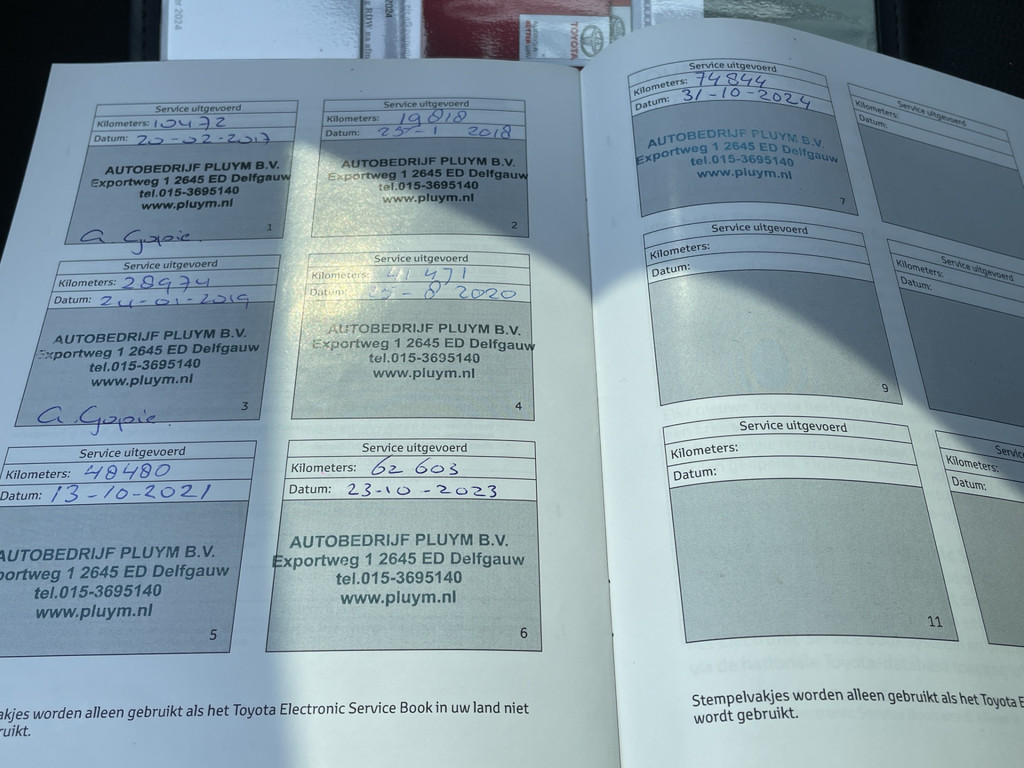 r 2024
2024
TOYOTA
Service uitgevoerd
Kilometers: 10472
Datum: 20-02-2017
AUTOBEDRIJF PLUYM B.V.
Exportweg 1 2645 ED Delfgauw
tel.015-3695140
www.pluym.nl
1
G. Gopie.
Service uitgevoerd
Kilometers: 19818
Datum: 25-1 2018
AUTOBEDRIJF PLUYM B.V.
Exportweg 1 2645 ED Delfgauw
tel.015-3695140
www.pluym.nl
2
Service uitgevoerd
Kilometers: 28974
Datum: 24-01-2019
AUTOBEDRIJF PLUYM B.V.
Exportweg 1 2645 ED Delfgauw
tel.015-3695140
www.pluym.nl
3
G. Gopie.
Service uitgevoerd
Kilometers: 41 471
Datum: 25-8 2020
AUTOBEDRIJF PLUYM B.V.
Exportweg 1 2645 ED Delfgauw
tel.015-3695140
www.pluym.nl
4
Service uitgevoerd
Kilometers: 48480
Datum: 13-10-2021
AUTOBEDRIJF PLUYM B.V.
portweg 1 2645 ED Delfgauw
tel.015-3695140
www.pluym.nl
5
Service uitgevoerd
Kilometers: 62 603
Datum: 23-10-2023
AUTOBEDRIJF PLUYM B.V.
Exportweg 1 2645 ED Delfgauw
tel.015-3695140
www.pluym.nl
6
akjes worden alleen gebruikt als het Toyota Electronic Service Book in uw land niet
ruikt.
Service uitgevoerd
Kilometers: 74844
Datum: 31-10-2024
AUTOBEDRIJF PLUYM B.V.
Exportweg 1 2645 ED Delfgauw
tel.015-3695140
www.pluym.nl
7
Service uitgevoerd
Kilometers:
Datum:
Service uitgevoerd
Kilometers:
Datum:
9
Service uitgevoerd
Kilometers:
Datum:
Service uitgevoerd
Kilometers:
Datum:
11
Servic
Kilometers:
Datum:
Stempelvakjes worden alleen gebruikt als het Toyota E
wordt gebruikt.